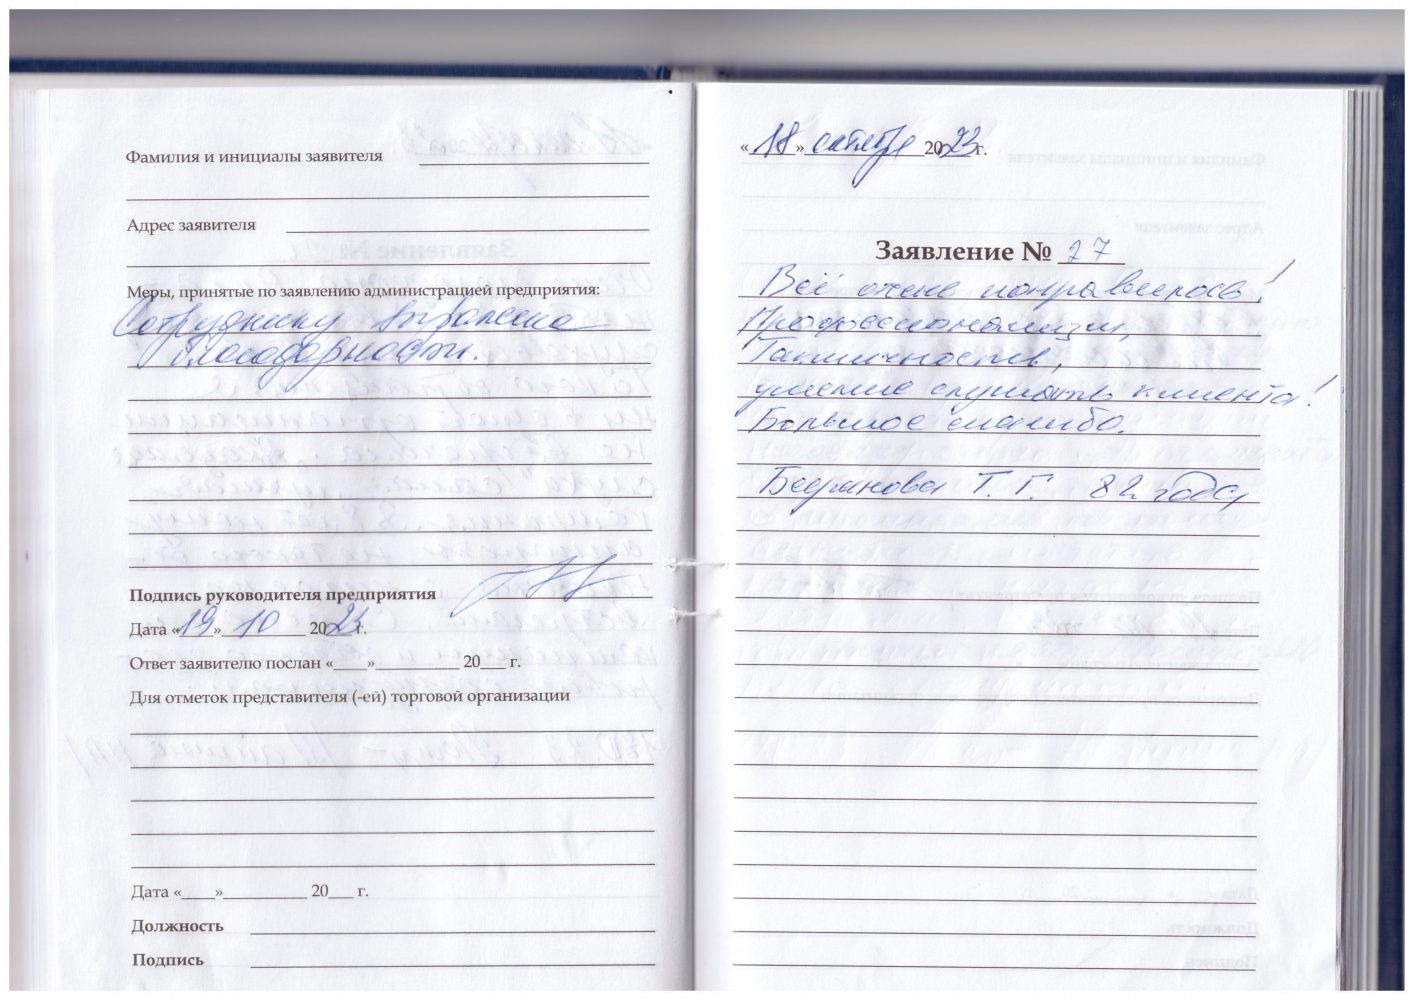 Фамилия и инициалы заявителя
Адрес заявителя
Меры, принятые по заявлению администрацией предприятия:
Сотруднику выражена
благодарность.
Подпись руководителя предприятия
Дата «19» 10 2023г.
Ответ заявителю послан «____»__________ 20___ г.
Для отметок представителя (-ей) торговой организации
Дата «____»__________ 20___ г.
Должность
Подпись
«18» октября 2023г.
Заявление № 27
Всё очень понравилось!
Профессионализм,
Тактичность,
умение слушать клиента!
Большое спасибо.
Т. Г. 82 года